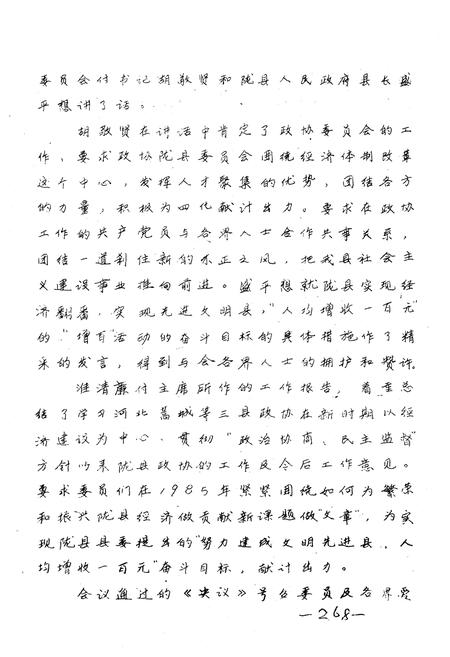 委员会付书记胡敬贤和陇县人民政府县长盛
平想讲了话。
胡敬贤在讲话中肯定了政协委员会的工
作，要求政协陇县委员会围绕经济体制改革
这个中心，发挥人才聚集的优势，团结各方
的力量，积极为四化献计出力。要求在政协
工作的共产党员与各界人士合作共事关系，
团结一道刹住新的不正之风，把我县社会主
义建设事业推向前进。盛平想就陇县实现经
济翻番，实现先进文明县，"人均增收一百元"
的"增百"活动的奋斗目标的具体措施作了精
采的发言，得到与会各界人士的拥护和赞许。
淮清廉付主席所作的工作报告，着重总
结了学习河北藁城等三县政协在新时期以经
济建设为中心、贯彻"政治协商、民主监督"
方针以来陇县政协的工作及今后工作意见。
要求委员们在1985年紧紧围绕如何为繁荣
和振兴陇县经济做贡献新课题做"文章"，为实
现陇县县委提出的"努力建成文明先进县，人
均增收一百元"奋斗目标，献计出力。
会议通过的《决议》号召委员及各界爱
—268—